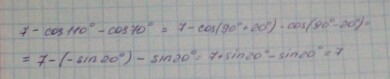 7 - cos110° - cos70° = 7 - cos(90° + 20°) - cos(90° - 20°) =
= 7 - (-sin20°) - sin20° = 7 + sin20° - sin20° = 7